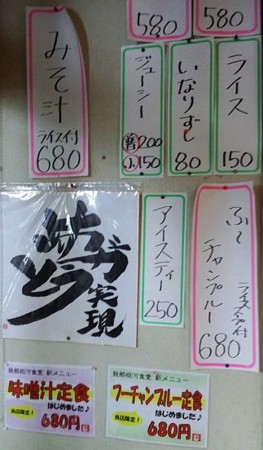 580
580
みそ汁
ライス付
680
ジューシー
200
小150
いなりずし
80
ライス
150
実現
アイスティー
250
ふーチャンプルー
680
新メニュー
味噌汁定食
はじめました♪
当店限定！
680円
新メニュー
フーチャンプルー定食
はじめました♪
当店限定！
680円